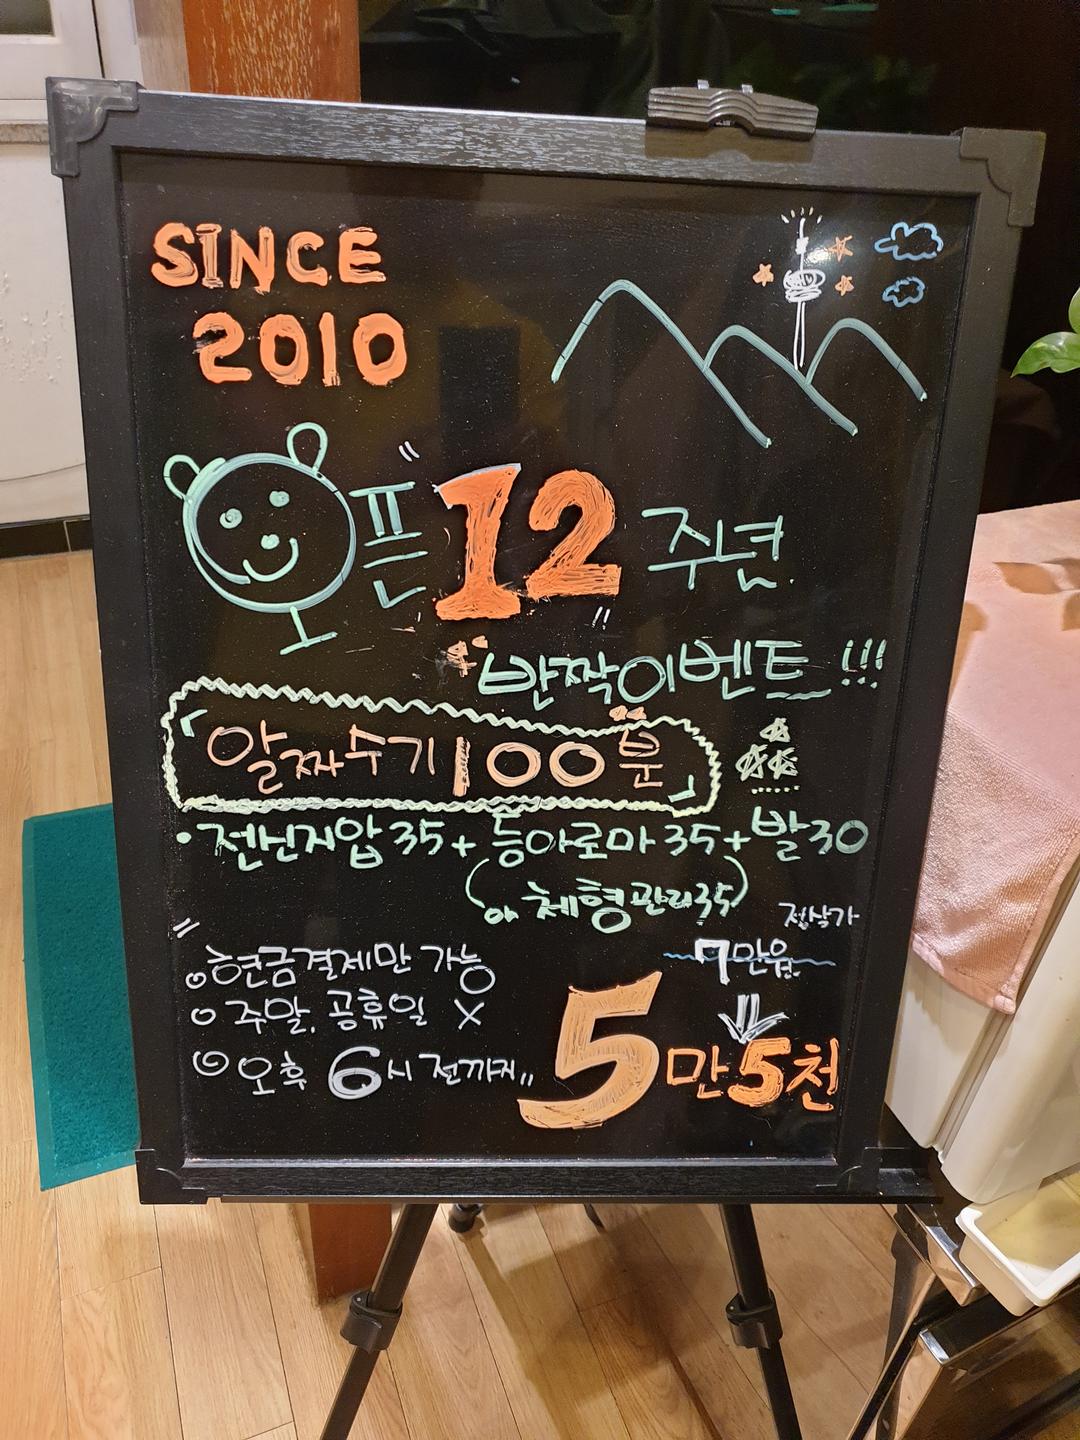 SINCE
2010
오픈 "12" 주년
반짝이벤트!!!
『알짜수기 100분』
• 전신지압 35 + 등아로마 35 + 발 30
(or 체형관리 35)
정상가
7만원
" 현금결제만 가능
주말, 공휴일 X
오후 6시 전까지 "
5만 5천